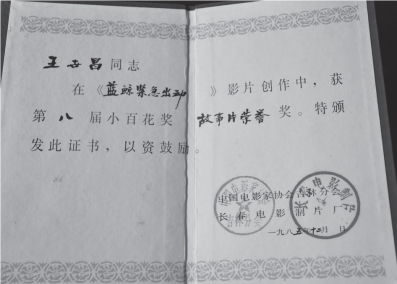 王世昌同志
在《蓝鲸紧急出动》影片创作中，获
第八届小百花奖 故事片荣誉奖。特颁
发此证书，以资鼓励。
中国电影家协会吉林分会
长春电影制片厂
一九八五年十二月 日